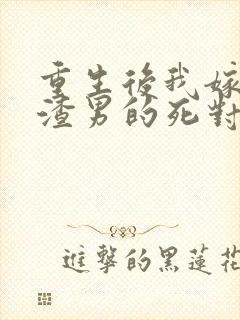 重生後我嫁
渣男的死對
進擊的黑蓮花